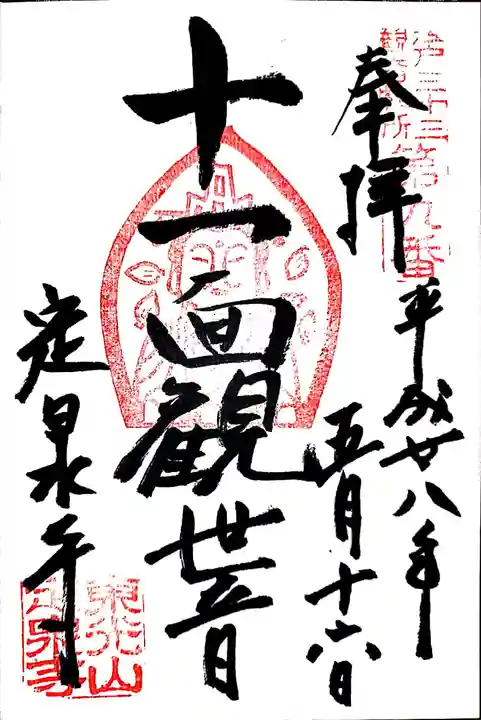 奉拝
江戸三十三
観音札所
第九番
平成廿八年
五月十六日
十一面観世音
定泉寺
東光山
定泉寺